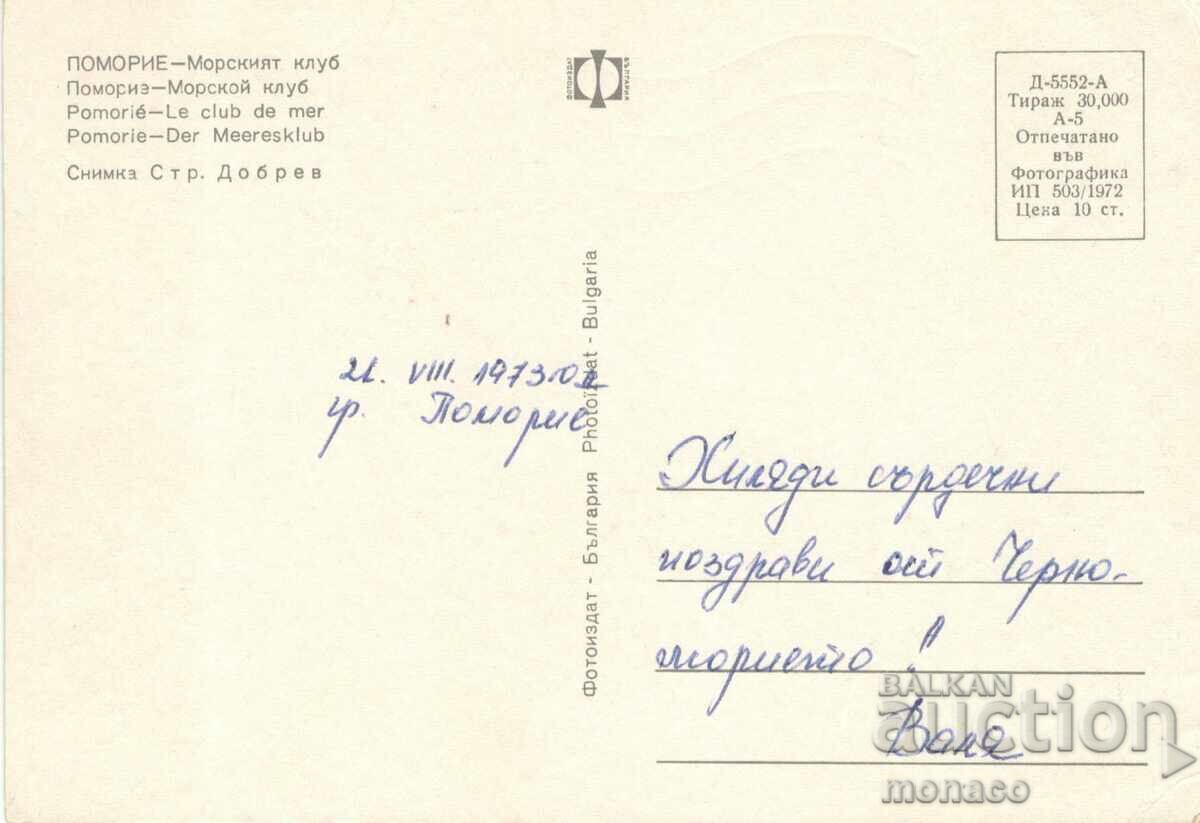 ПОМОРИЕ—Морският клуб
Помориэ—Морской клуб
Pomorié—Le club de mer
Pomorie—Der Meeresklub
Снимка Стр. Добрев
ФОТОИЗДАТ
БЪЛГАРИЯ
Д-5552-А
Тираж 30,000
А-5
Отпечатано
във
Фотографика
ИП 503/1972
Цена 10 ст.
Фотоиздат - България Photoizdat - Bulgaria
21. VIII. 1973
гр. Поморие
Хиляди сърдечни
поздрави от Черно-
морието!
Ваня
BALKAN
auction
monaco